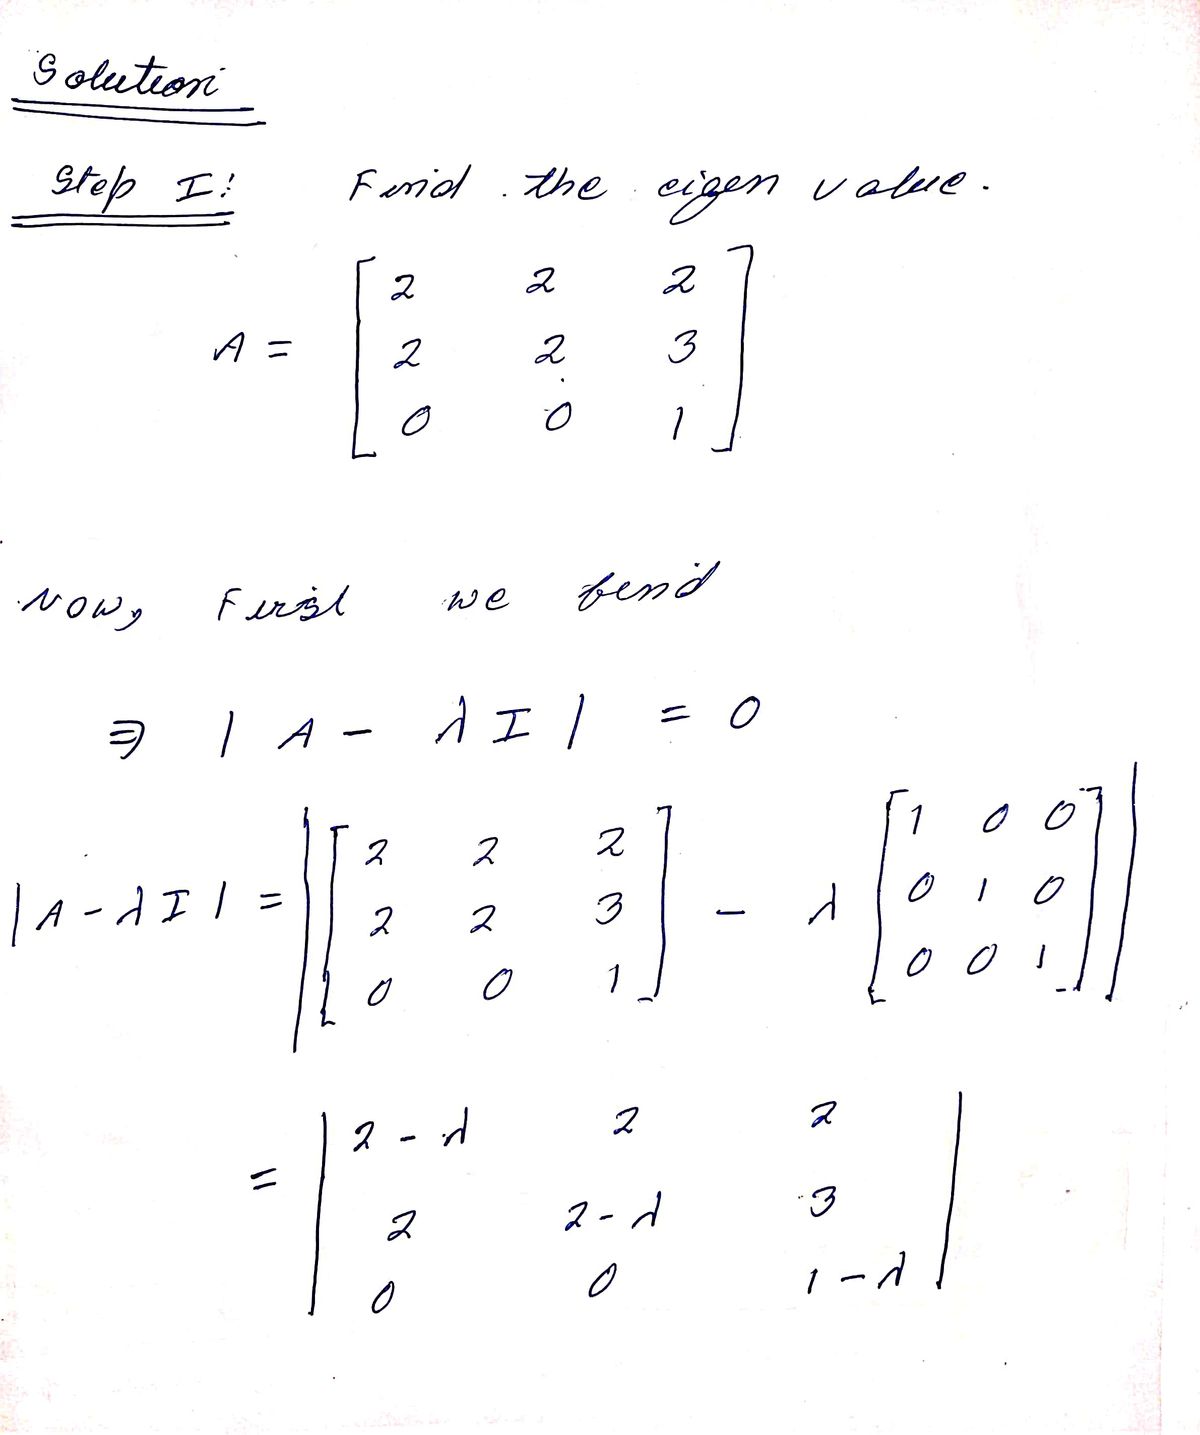 Solution
Step I: Find the eigen value.
A = [ 2 2 2
2 2 3
0 0 1 ]
Now, First we find
⇒ | A - λ I | = 0
| A - λ I | = | [ 2 2 2
2 2 3
0 0 1 ] - λ [ 1 0 0
0 1 0
0 0 1 ] |
= | 2 - λ 2 2
2 2 - λ 3
0 0 1 - λ |